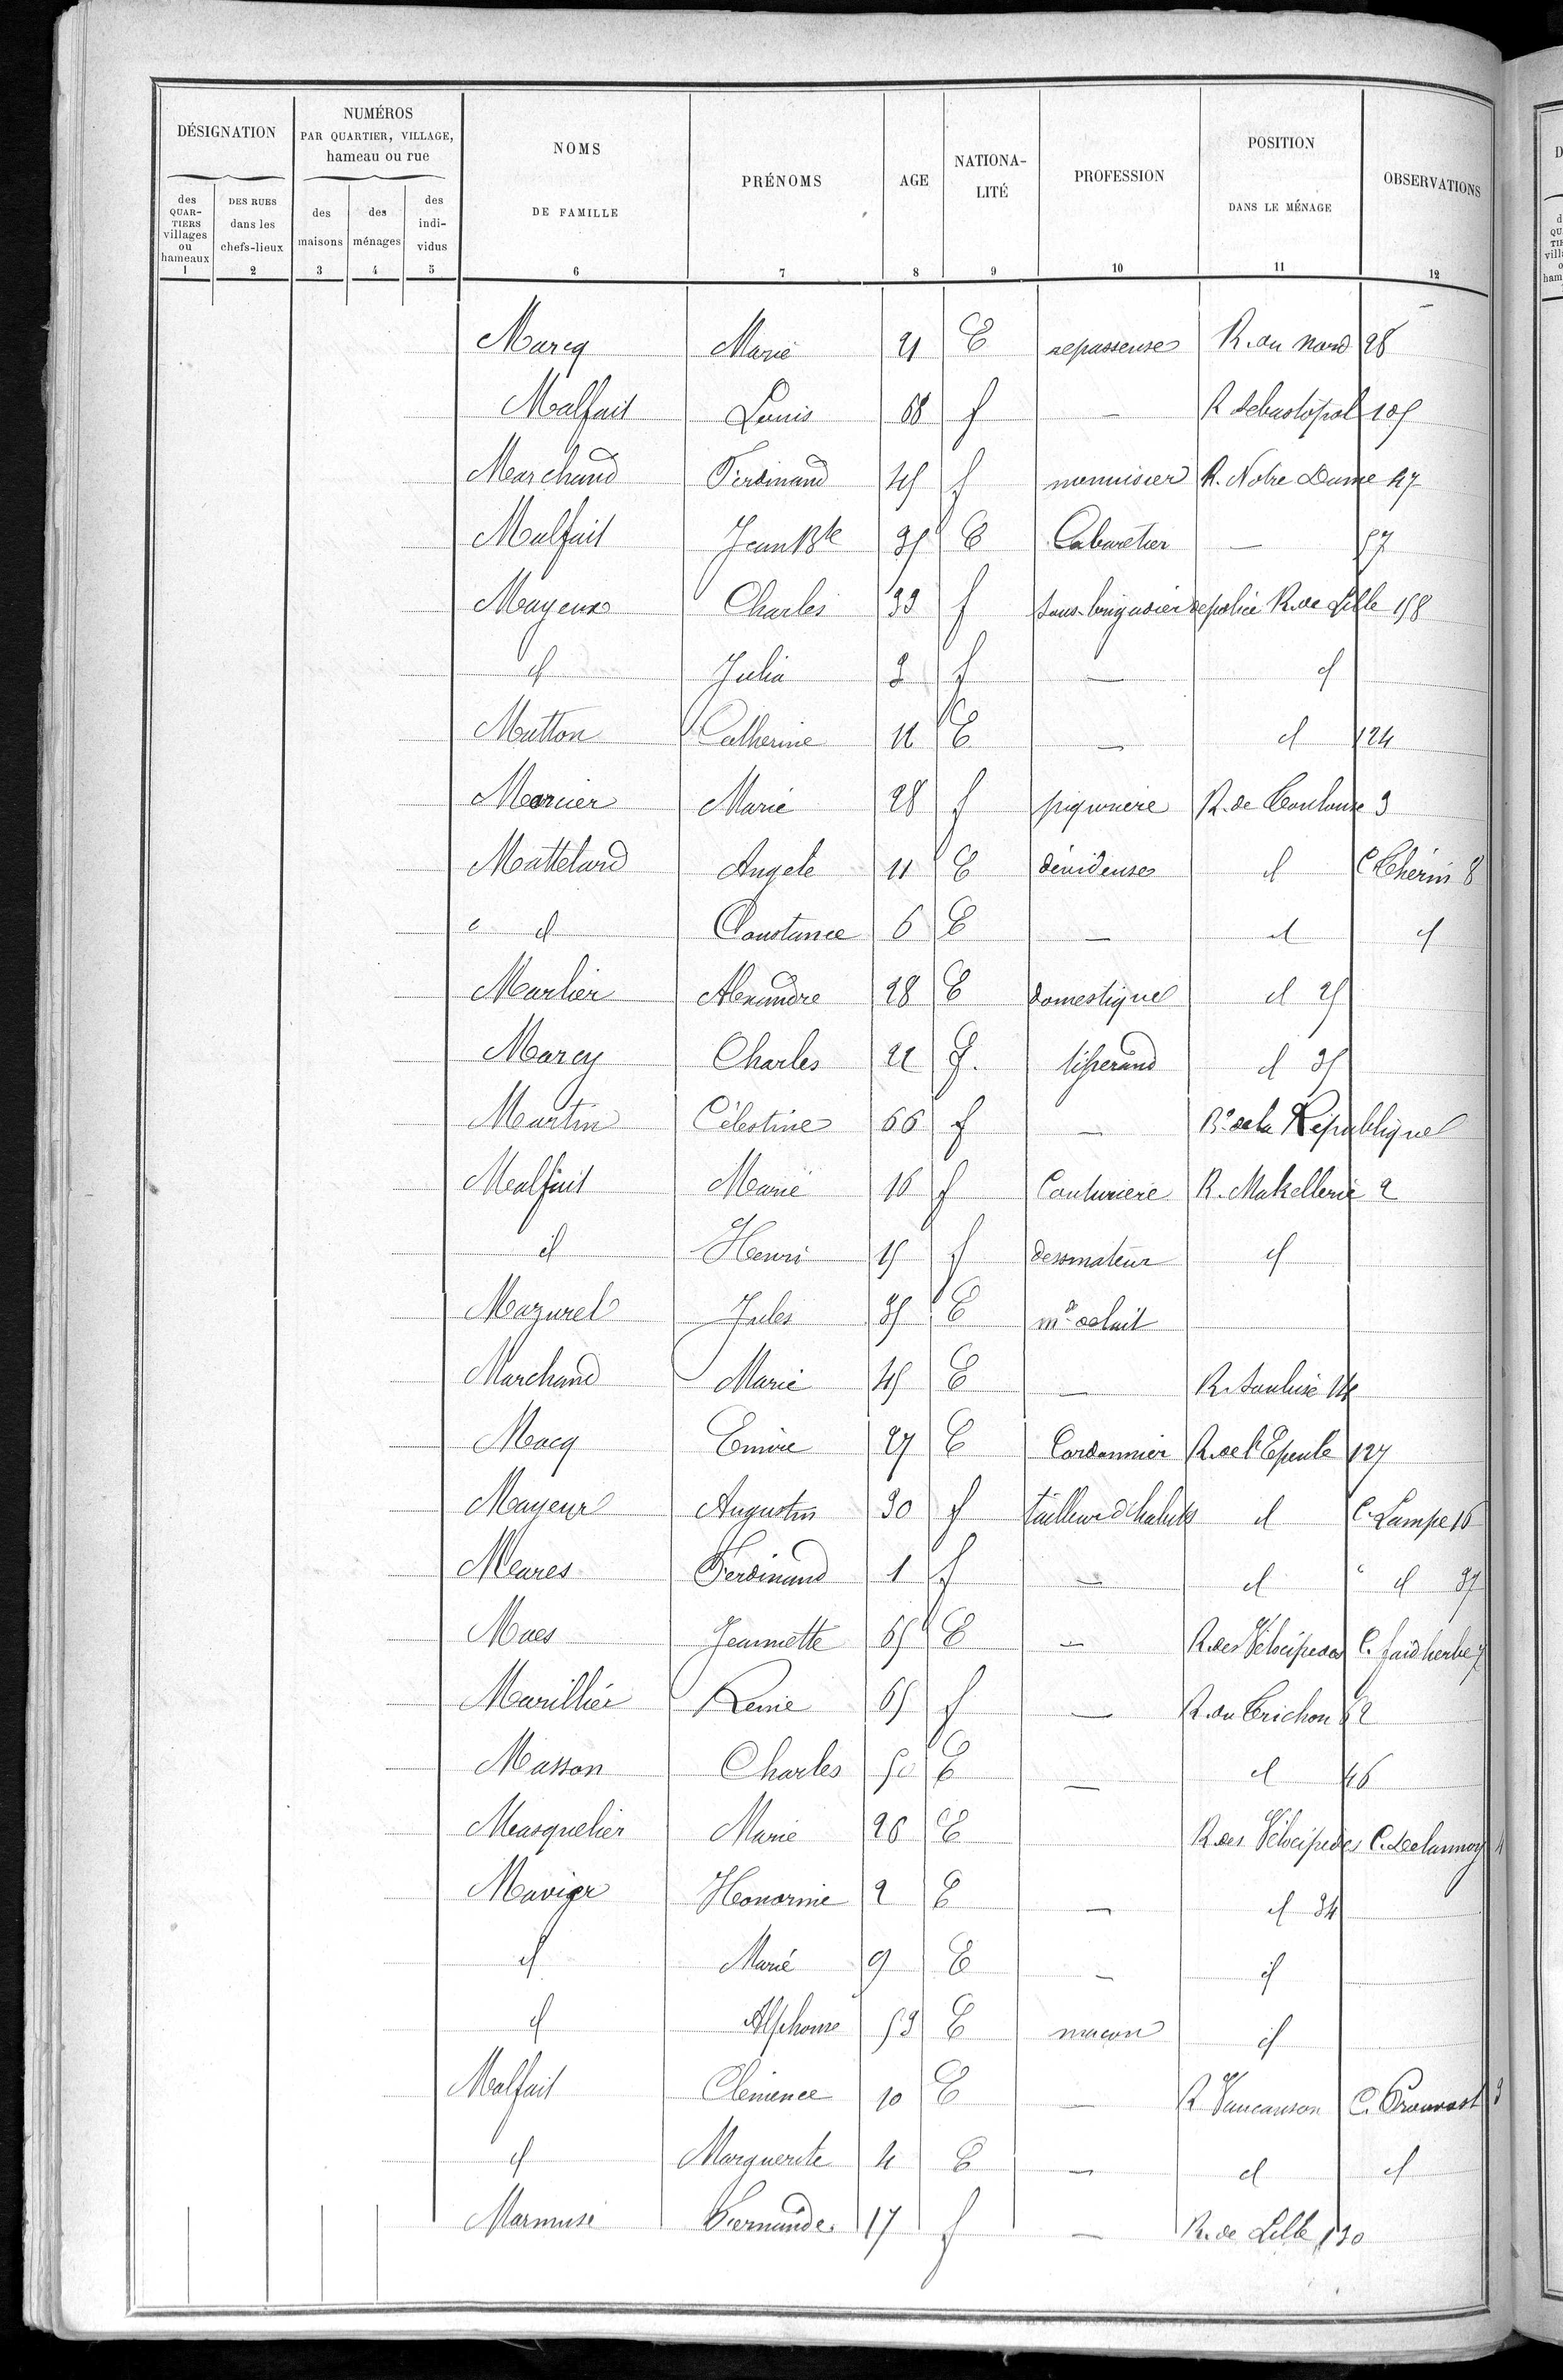 DÉSIGNATION
NUMÉROS
PAR QUARTIER, VILLAGE,
hameau ou rue
NOMS
DE FAMILLE
PRÉNOMS
AGE
NATIONA-
LITÉ
PROFESSION
POSITION
DANS LE MÉNAGE
OBSERVATIONS
des
QUAR-
TIERS
villages
ou
hameaux
DES RUES
dans les
chefs-lieux
des
maisons
des
ménages
des
indi-
vidus
1 2 3 4 5 6 7 8 9 10 11 12
Marcq Marie 21 E repasseuse R. du Nord 28
Malfait Louis 68 f — R Sebastopol 105
Marchand Ferdinand 45 f menuisier R. Notre Dame 47
Malfait Jean Bte 35 E Cabaretier — 57
Mayeux Charles 33 f sous-brigadier de police R. de Lille 158
id Julia 3 f — id
Mutton Catherine 12 E — id 124
Mercier Marie 28 f piqurière R. de Toulouse 3
Mattelard Angele 11 E dévideuse id C Thérin 8
id Constance 6 E — id id
Marlier Alexandre 28 E domestique id 25
Marcy Charles 22 f. tisserand id 35
Martin Célestine 66 f — Bd de la République
Malfait Marie 16 f Couturiere R. Matellerie 2
id Henri 15 f dessinateur id
Mazurel Jules 35 E md de lait
Marchand Marie 45 E — R. 14
Macq 27 E Cordonnier R. de l'Epeule 127
Mayeur Augustin 30 f tailleur d'habits id C. Lampe 16
Meares Ferdinand 1 f — id id 37
Maes Jeannette 65 E — R. des Vélocipedes C. faidherbe 7
Marillier Renie 65 f — R. du Trichon 62
Masson Charles 50 E — id 46
Masquelier Marie 26 E R. des Vélocipedes C. Delannoy 4
Mavier Honorine 2 E — id 34
id Marie 9 E — id
id Alphonse 53 E maçon id
Malfait Clémence 10 E — R Vaucanson C. Prouvost 3
id Marguerite 4 E — id id
Marmuse Fernande 17 f — R. de Lille 130